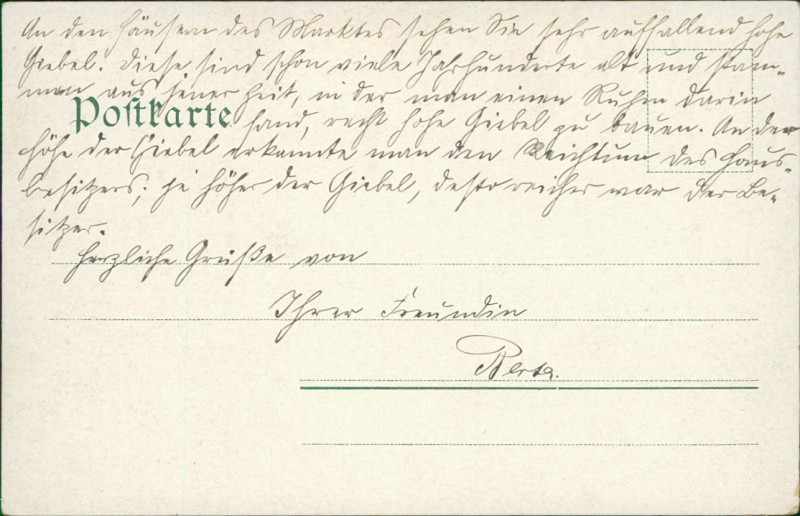 An den Häusern des Marktes sehen Sie sehr auffallend hohe
Giebel. Diese sind schon viele Jahrhunderte alt und stam-
men aus jener Zeit, in der man einen Ruhm darin
Postkarte
fand, recht hohe Giebel zu bauen. An der
Höhe der Giebel erkannte man den Reichtum des Haus-
besitzers; je höher der Giebel, desto reicher war der Be-
sitzer.
Herzliche Grüße von
Ihrer Freundin
Berta.